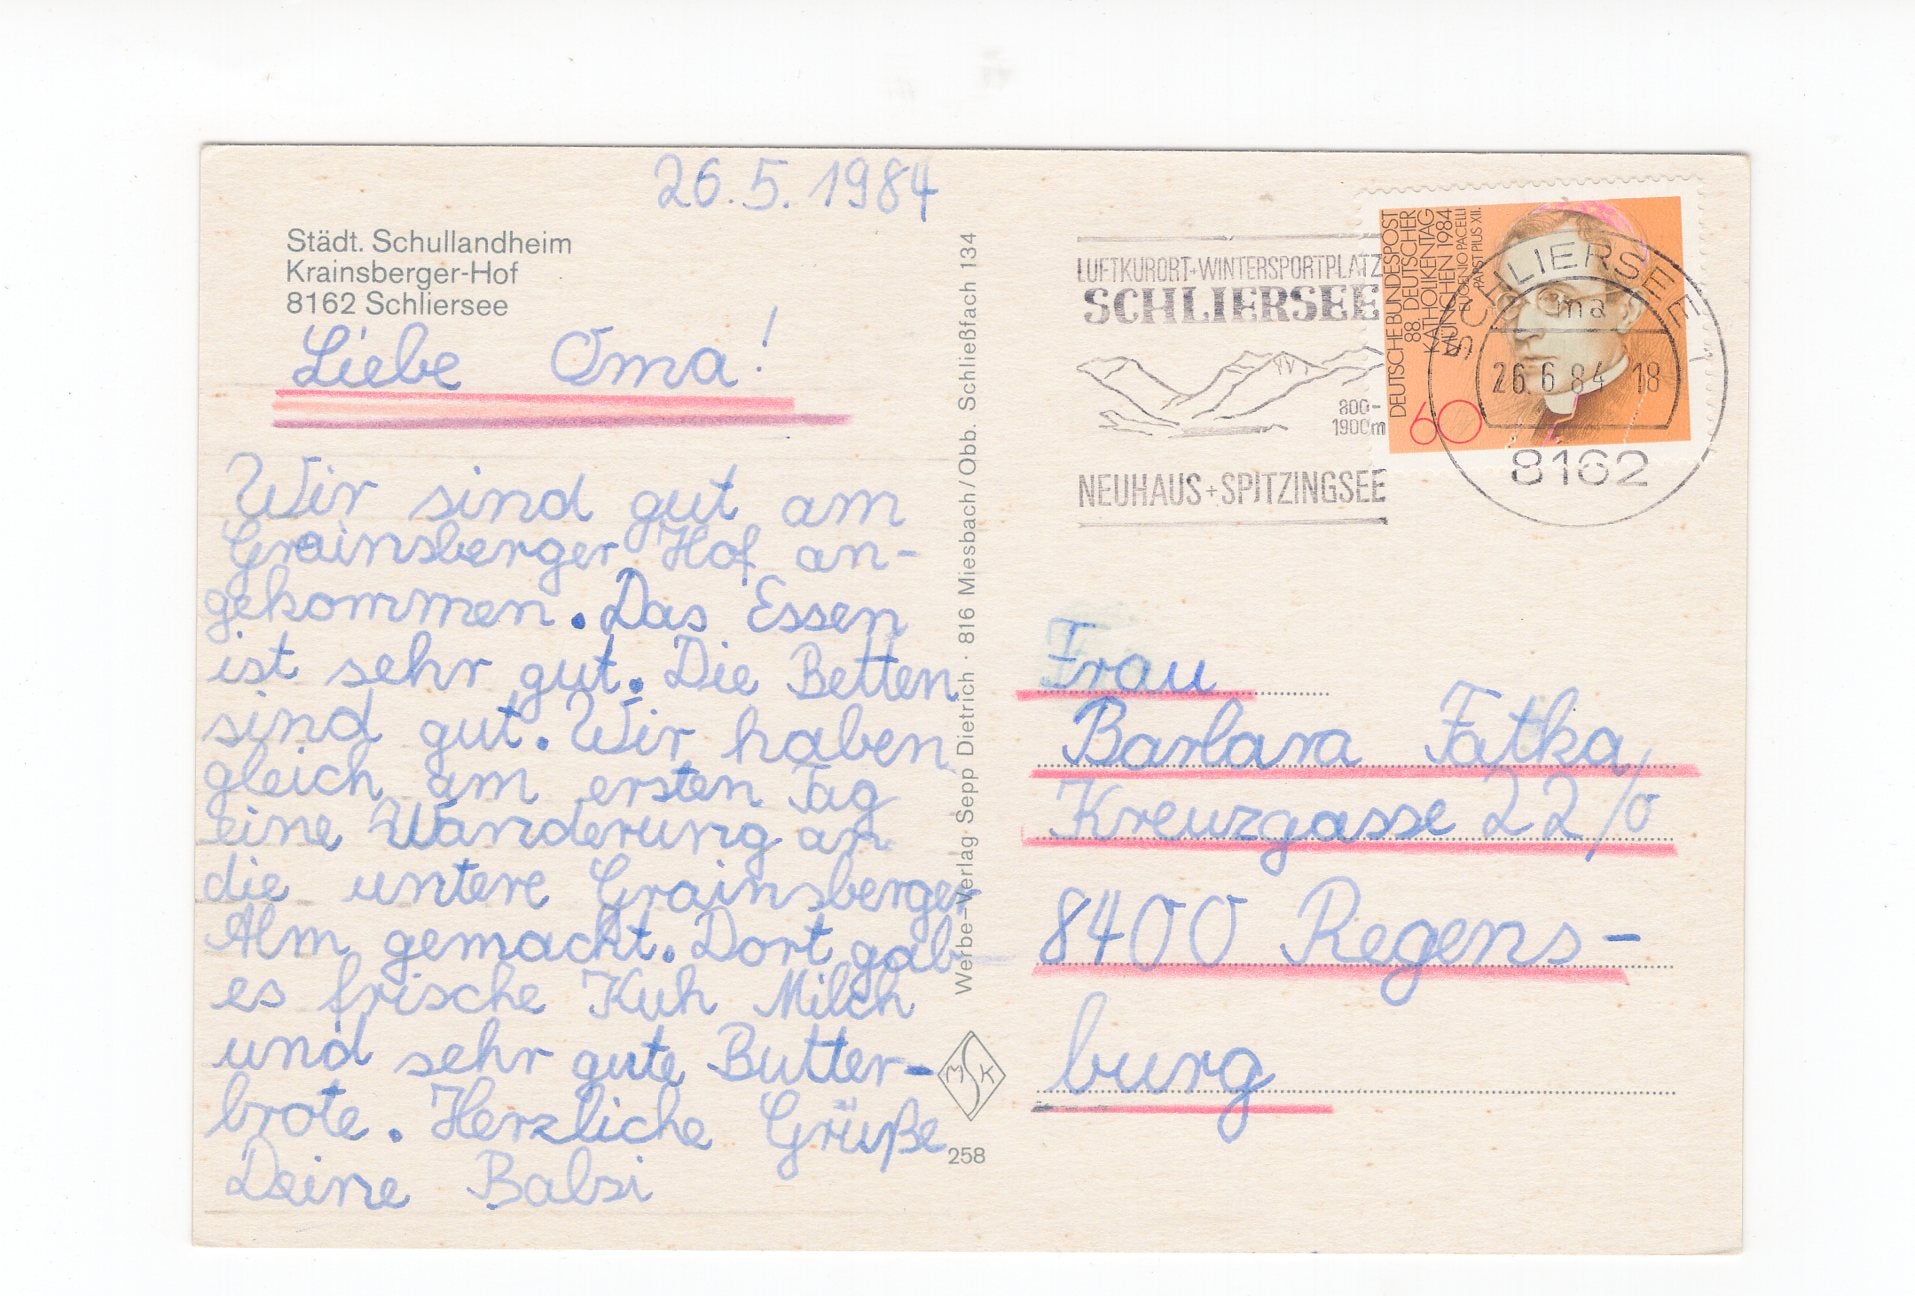 26.5.1984
Städt. Schullandheim
Krainsberger-Hof
8162 Schliersee
Liebe Oma!
Wir sind gut am
Grainsberger Hof an-
gekommen. Das Essen
ist sehr gut. Die Betten
sind gut. Wir haben
gleich am ersten Tag
eine Wanderung an
die untere Grainsberger
Alm gemacht. Dort gab
es frische Kuh Milch
und sehr gute Butter-
brote. Herzliche Grüße
Deine Babsi
Werbe-Verlag Sepp Dietrich · 816 Miesbach/Obb. Schließfach 134
MSK
258
LUFTKURORT+WINTERSPORTPLATZ
SCHLIERSEE
800-
1900m
NEUHAUS+SPITZINGSEE
DEUTSCHE BUNDESPOST
88. DEUTSCHER
KATHOLIKENTAG
MÜNCHEN 1984
EUGENIO PACELLI
PAPST PIUS XII.
60
SCHLIERSEE 1
ma
26.6.84 18
8162
Frau
Barbara Fatka
Kreuzgasse 22/0
8400 Regens-
burg